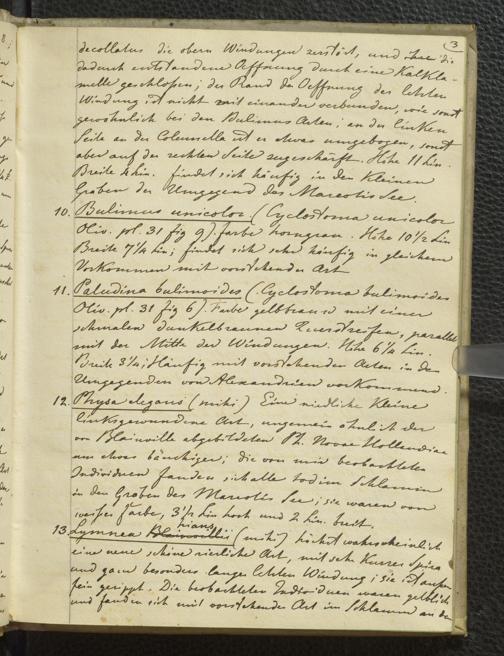 3
decollatus die obern Windungen zerstört, und die
dadurch entstandene Öffnung durch eine Kalkla-
melle geschlossen; der Rand der Oeffnung der letzten
Windung ist nicht mit einander verbunden, wie sonst
gewöhnlich bei den Bulimus Arten; an der linken
Seite an der Columella ist er etwas umgebogen, sonst
aber auf der rechten Seite zugeschärft. Höhe 11 Lin.
Breite Lin. findet sich häufig in den kleinen
Gräben der Umgegend des Mareotis See.
10. Bulimus unicolor (Cyclostoma unicolor
Oliv. pl. 31 fig 9). Farbe horngrau. Höhe 10 1/2 Lin
Breite 7 1/4 Lin; findet sich sehr häufig in gleichem
Vorkommen mit vorstehender Art
11. Paludina bulimoides (Cyclostoma bulimoides
Oliv. pl. 31 fig 6). Farbe gelbbraun mit einer
schmalen dunkelbraunen Querstreifen, parallel
mit der Mitte der Windungen. Höhe 6 1/4 Lin.
Breite 3 1/4; Häufig mit vorstehenden Arten in den
Umgegenden von Alexandrien vorkommend.
12. Physa elegans (mihi) Eine niedliche kleine
linksgewundene Art, ungemein ähnlich der
von Blainville abgebildeten Ph. Novae Hollandiae
nur etwas bauchiger; die von mir beobachteten
Individuen fanden sich alle tod im Schlamm
in den Gräben des Mareotis See; sie waren von
weißer Farbe, 3 1/2 Lin hoch und 2 Lin. breit.
13. Lymnea (mihi) höchst wahrscheinlich
eine neue schöne zierliche Art, mit sehr kurzer Spira
und ganz besonders langer letzten Windung; sie ist außen
fein gerippt. Die beobachteten Individuen waren gelblich
und fanden sich mit vorstehender Art im Schlamm an den